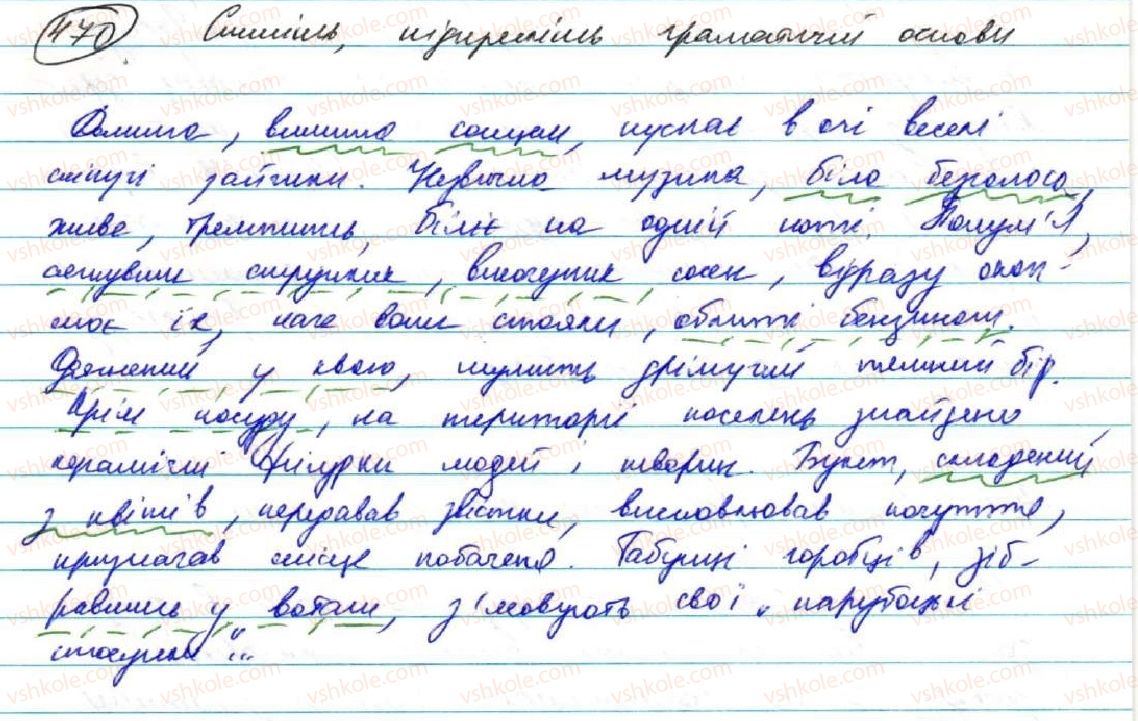 470 Спишіть, підкресліть граматичні основи
Долина, вмита сонцем, пускає в очі веселі
сліпучі зайчики. Незвична музика, біла безголоса,
живе, тремтить, біліє на одній ноті. Полум'я,
сягнувши струнких, височезних сосен, відразу охоп-
лює їх, наче вони стояли, облиті бензином.
Одягнений у хвою, шумить дрімучий темний бір.
Крім посуду, на території поселень знайдено
керамічні фігурки людей і тварин. Букет, складений
з квітів, передавав звістки, висловлював почуття,
призначав місце побачення. Табунці горобців, зіб-
равшись у ватаги, з'ясовують свої „парубоцькі
стосунки"...
vshkole.com